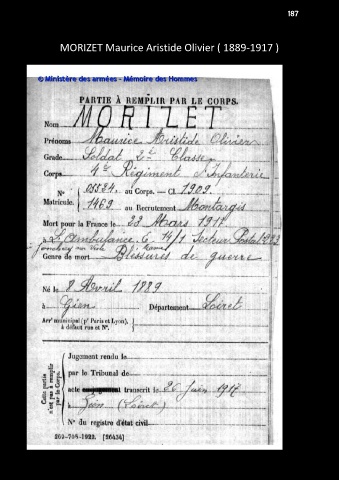 187
MORIZET Maurice Aristide Olivier ( 1889-1917 )
© Ministère des armées - Mémoire des Hommes
PARTIE À REMPLIR PAR LE CORPS.
Nom MORIZET
Prénoms Maurice Aristide Olivier
Grade Soldat 2e Classe
Corps 4e Régiment d'Infanterie
N° 05534 au Corps. — Cl. 1909.
Matricule. 1469 au Recrutement Montargis
Mort pour la France le 23 Mars 1917
à L'Ambulance E 14/1 Secteur Postal
Genre de mort Blessures de guerre
Né le 8 Avril 1889
à Gien Département Loiret
Arr¹ municipal (p¹ Paris et Lyon), à défaut rue et N°.
Cette partie n'est pas à remplir par le Corps.
Jugement rendu le
par le Tribunal de
acte transcrit le 26 Juin 1917
Gien (Loiret)
N° du registre d'état civil
269-708-1922. [26434]